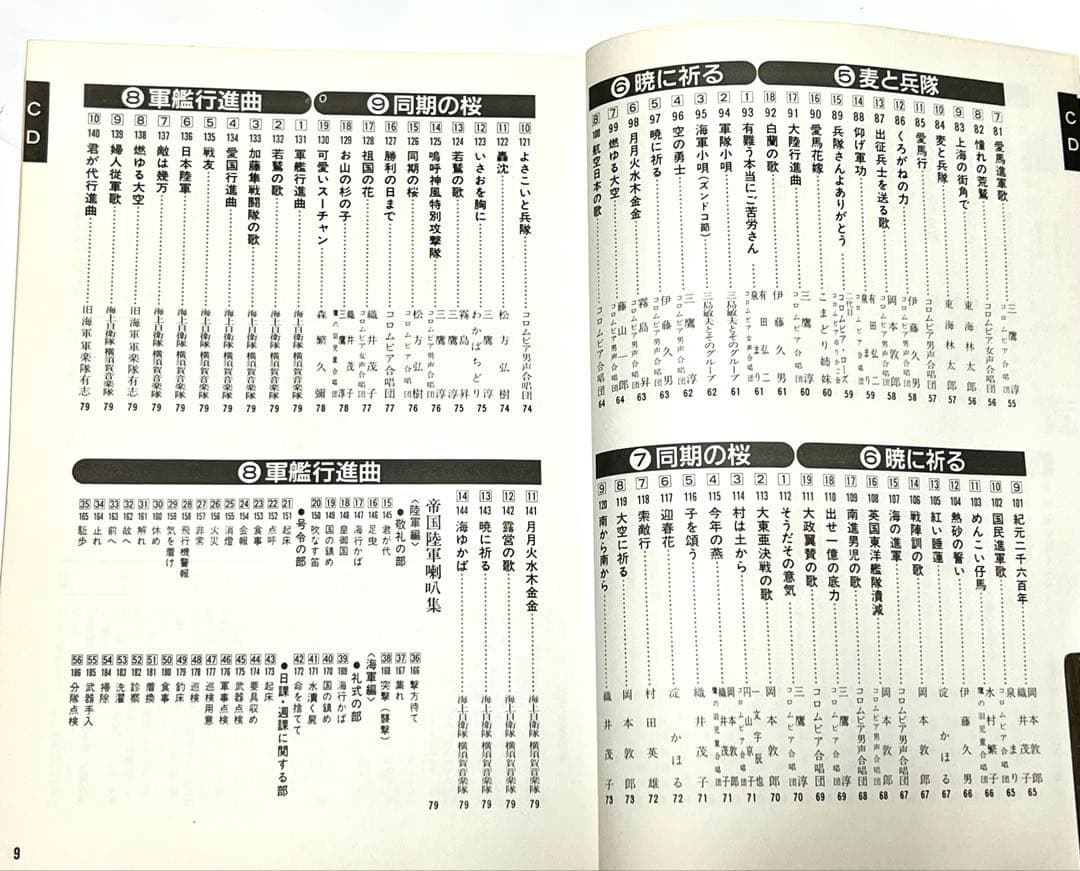 CD
⑤麦と兵隊
7 81 愛馬進軍歌……三鷹淳 コロムビア合唱団 55
8 82 憧れの荒鷲……コロムビア女声合唱団 56
9 83 上海の街角で……東海林太郎 56
10 84 麦と兵隊……東海林太郎 56
11 85 愛馬行……コロムビア男声合唱団 57
12 86 くろがねの力……伊藤久男 コロムビア合唱団 58
13 87 出征兵士を送る歌……岡本敦郎 58
14 88 仰げ軍功……有田弘二 泉まり 59
15 89 兵隊さんよありがとう……二代目コロムビア・ローズ コロムビアゆりかご会 59
16 90 愛馬花嫁……こまどり姉妹 60
17 91 大陸行進曲……三鷹淳 コロムビア合唱団 60
18 92 白蘭の歌……伊藤久男 61
⑥暁に祈る
1 93 有難う本当にご苦労さん……有田弘二 泉まり コロムビア女声合唱団 61
2 94 軍隊小唄……三島敏夫とそのグループ 61
3 95 海軍小唄(ズンドコ節)……三島敏夫とそのグループ 62
4 96 空の勇士……三鷹淳 コロムビア合唱団 62
5 97 暁に祈る……伊藤久男 63
6 98 月月火水木金金……霧島昇 コロムビア男声合唱団 63
7 99 燃ゆる大空……藤山一郎 64
8 100 航空日本の歌……コロムビア合唱団 64
⑥暁に祈る
9 101 紀元二千六百年……岡本敦郎 織井茂子 65
10 102 国民進軍歌……泉まり 66
11 103 めんこい仔馬……水村繁子 鷹の羽児童合唱団 66
12 104 熱砂の誓い……伊藤久男 67
13 105 紅い睡蓮……淀かほる 67
14 106 戦陣訓の歌……岡本敦郎 67
15 107 海の進軍……コロムビア男声合唱団 67
16 108 英国東洋艦隊潰滅……コロムビア男声合唱団 68
17 109 南進男児の歌……三鷹淳 68
18 110 出せ一億の底力……コロムビア男声合唱団 69
19 111 大政翼賛の歌……三鷹淳 コロムビア合唱団 70
⑦同期の桜
1 112 そうだその意気……岡本敦郎 70
2 113 大東亜決戦の歌……一文字辰也 70
3 114 村は土から……円山京子 岡本敦郎 鷹の羽児童合唱団 71
4 115 今年の燕……織井茂子 71
5 116 子を頌う……淀かほる 72
6 117 迎春花 72
7 118 索敵行……村田英雄 72
8 119 大空に祈る……岡本敦郎 73
9 120 南から南から……織井茂子 73
CD
⑨同期の桜
10 121 よさこいと兵隊……コロムビア男声合唱団 74
11 122 轟沈……松方弘樹 74
12 123 いさおを胸に……わかばちどり 75
13 124 若鷲の歌……霧島昇 75
14 125 嗚呼神風特別攻撃隊……三鷹淳 コロムビア男声合唱団 76
15 126 同期の桜……松方弘樹 76
16 127 勝利の日まで……コロムビア合唱団 77
17 128 祖国の花……織井茂子 77
18 129 お山の杉の子……三鷹淳 鷹の羽児童合唱団 78
19 130 可愛いスーチャン……森繁久彌 78
⑧軍艦行進曲
1 131 軍艦行進曲……海上自衛隊 横須賀音楽隊 79
2 132 若鷲の歌……海上自衛隊 横須賀音楽隊 79
3 133 加藤隼戦闘隊の歌……海上自衛隊 横須賀音楽隊 79
4 134 愛国行進曲……海上自衛隊 横須賀音楽隊 79
5 135 戦友……海上自衛隊 横須賀音楽隊 79
6 136 日本陸軍……海上自衛隊 横須賀音楽隊 79
7 137 敵は幾万……海上自衛隊 横須賀音楽隊 79
8 138 燃ゆる大空……旧海軍軍楽隊有志 79
9 139 婦人従軍歌……海上自衛隊 横須賀音楽隊 79
10 140 君が代行進曲……旧海軍軍楽隊有志 79
⑧軍艦行進曲
11 141 月月火水木金金……海上自衛隊 横須賀音楽隊 79
12 142 露営の歌……海上自衛隊 横須賀音楽隊 79
13 143 暁に祈る……海上自衛隊 横須賀音楽隊 79
14 144 海ゆかば……海上自衛隊 横須賀音楽隊 79
帝国陸軍喇叭集 79
〈陸軍編〉
●敬礼の部
15 145 君が代
16 146 足曳
17 147 海行かば
18 148 皇御国
19 149 国の鎮め
20 150 吹なす笛
●号令の部
21 151 起床
22 152 点呼
23 153 食事
24 154 会報
25 155 消燈
26 156 火災
27 157 非常
28 158 飛行機警報
29 159 気を着け
30 160 休め
31 161 解れ
32 162 故へ
33 163 前へ
34 164 止れ
35 165 駈歩
36 166 撃方待て
37 167 集れ
38 168 突撃(襲撃)
〈海軍編〉
●礼式の部
39 169 海行かば
40 170 国の鎮め
41 171 水漬く屍
42 172 命を捨てて
●日課・週課に関する部
43 173 起床
44 174 要具収め
45 175 武器点検
46 176 軍事点検
47 177 巡検用意
48 178 巡検
49 179 釣床
50 180 食事
51 181 着換
52 182 診察
53 183 洗濯
54 184 掃除
55 185 武器手入
56 186 分隊点検
9